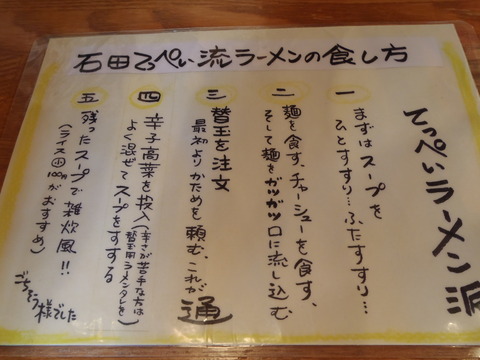 石田てっぺい流ラーメンの食し方
てっぺいラーメン派
一 まずはスープを
ひとすすり…ふたすすり…
二 麺を食す、チャーシューを食す、
そして麺をガツガツ口に流し込む
三 替玉を注文
最初よりかためを頼む、これが通
四 辛子高菜を投入(辛さが苦手な方は
替玉用ラーメンタレを)
よく混ぜてスープをすする
五 残ったスープで雑炊風!!
(ライス㊉100円がおすすめ)
ごちそう様でした